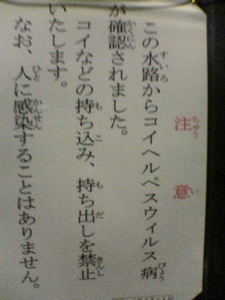 注意
この水路からコイヘルペスウィルス病
が確認されました。
コイなどの持ち込み、持ち出しを禁止
いたします。
なお、人に感染することはありません。